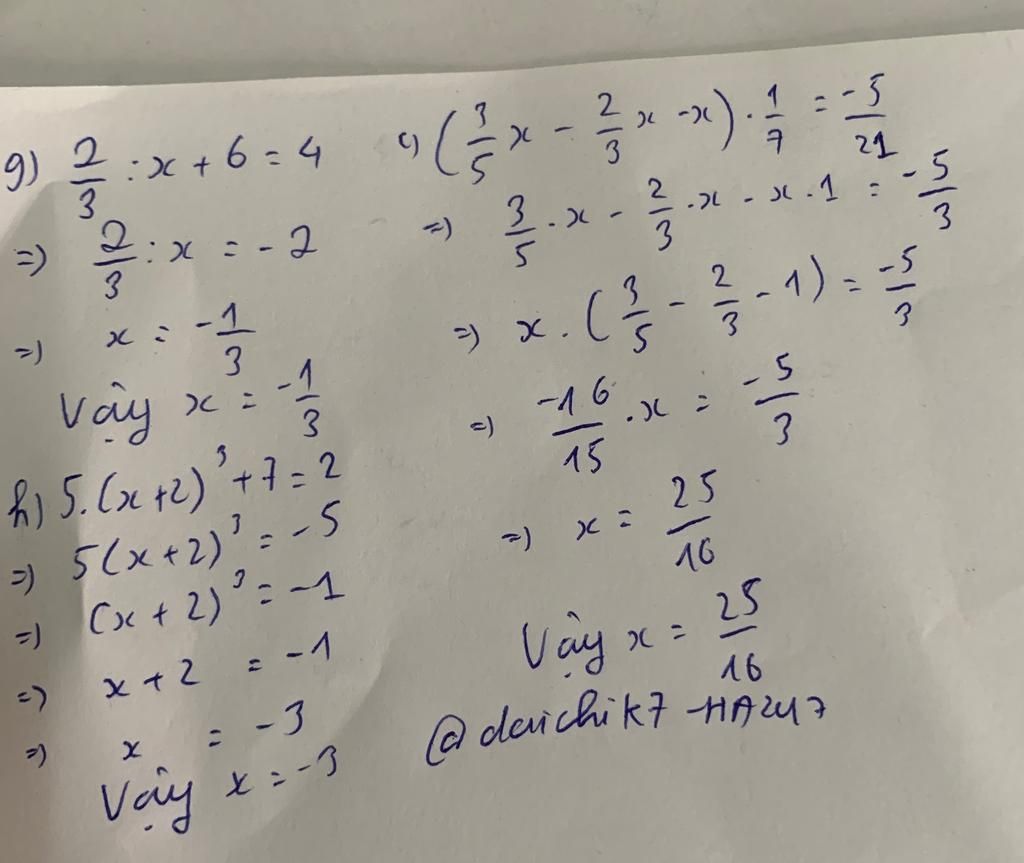 g) 2/3 : x + 6 = 4
=) 2/3 : x = -2
=) x = -1/3
Vậy x = -1/3
h) 5.(x+2)³ + 7 = 2
=) 5(x+2)³ = -5
=) (x+2)³ = -1
=) x + 2 = -1
=) x = -3
Vậy x = -3
(3/5 x - 2/3 x - x) . 1/7 = -5/21
=) 3/5 . x - 2/3 . x - x . 1 = -5/3
=) x . (3/5 - 2/3 - 1) = -5/3
=) -16/15 . x = -5/3
=) x = 25/16
Vậy x = 25/16